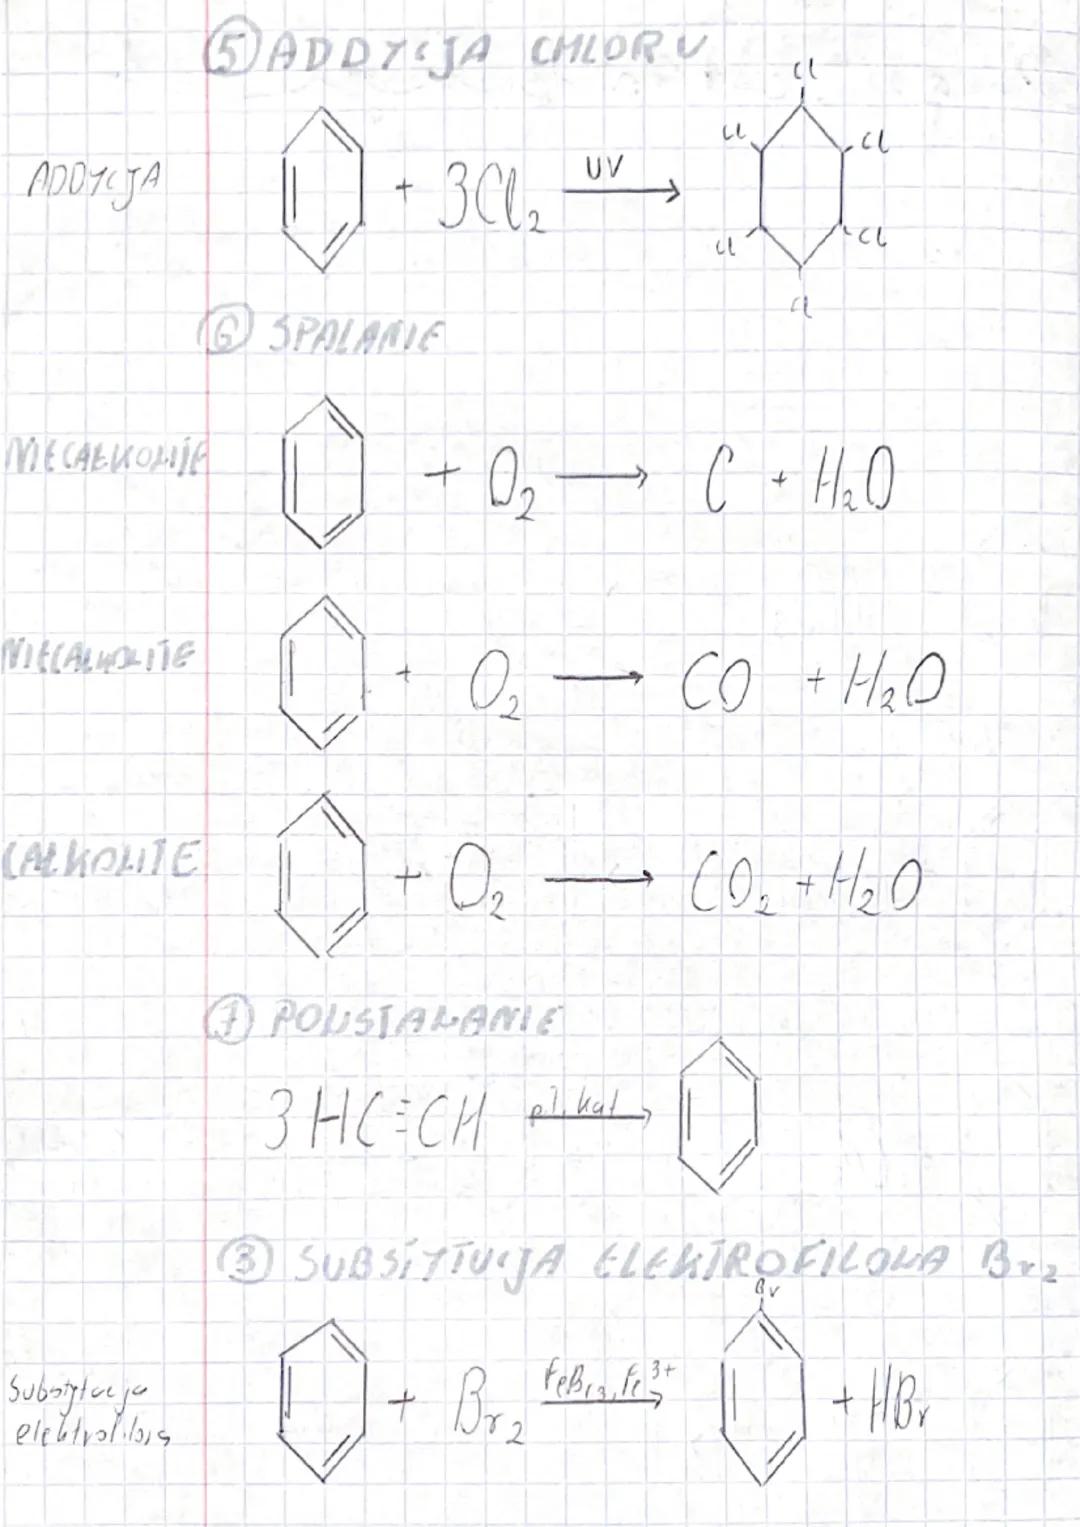 5 ADDYCJA CHLORU
ADDYCJA + 3Cl2 UV → Cl Cl Cl Cl Cl Cl
6 SPALANIE
NIECAŁKOWITE + O2 → C + H2O
NIECAŁKOWITE + O2 → CO + H2O
CAŁKOWITE + O2 → CO2 + H2O
7 POWSTAWANIE
3HC≡CH pT, kat →
3 SUBSTYTUCJA ELEKTROFILOWA Br2
Substytucja elektrofilowa + Br2 FeBr3, Fe3+ → Br + HBr